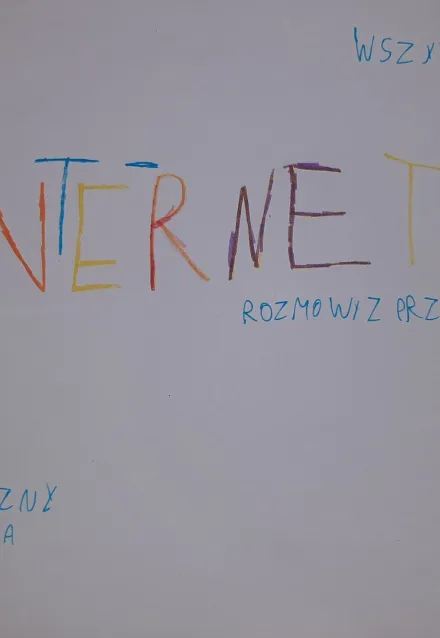 WSZY
NTERNET
ROZMOWIZ PRZ
ZNY
A